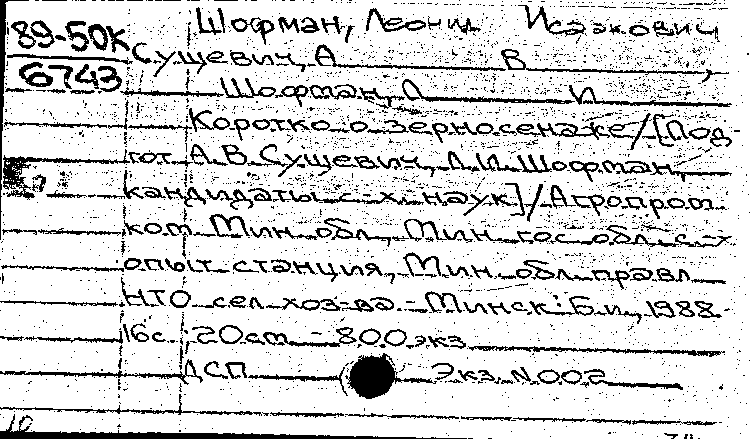 Шофман, Леонид Исаакович
89-50К
6743
Сушевич, А В ,
Шофман, Л И
Коротко о зерносенаже/[Под-
гот. А.В. Сушевич, Л.И. Шофман,
кандидаты с.-х. наук]/Агропром
ком. Мин. обл., Мин. гос. обл. с.-х
опыт. станция, Мин. обл. правл.
НТО сел. хоз-ва.- Минск: Б.и., 1988.-
16с.; 20cm - 800 экз
ДСП Экз. N 002
10